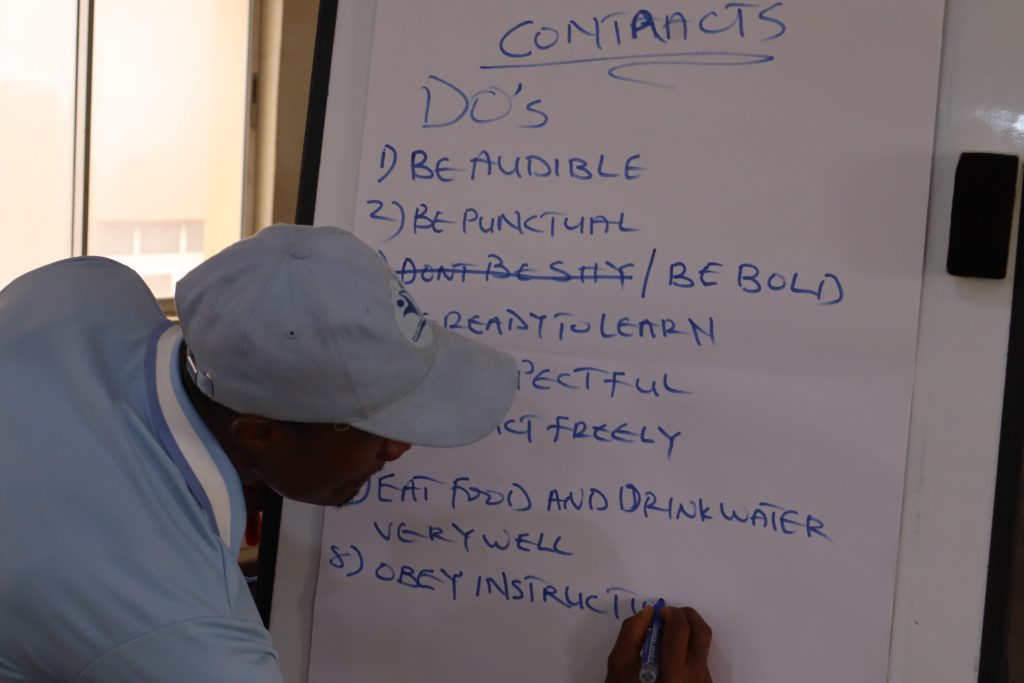 CONTRACTS
DO's
1) BE AUDIBLE
2) BE PUNCTUAL
) DONT BE SHY / BE BOLD
READY TO LEARN
PECTFUL
CT FREELY
) EAT FOOD AND DRINK WATER
VERY WELL
8) OBEY INSTRUCTI